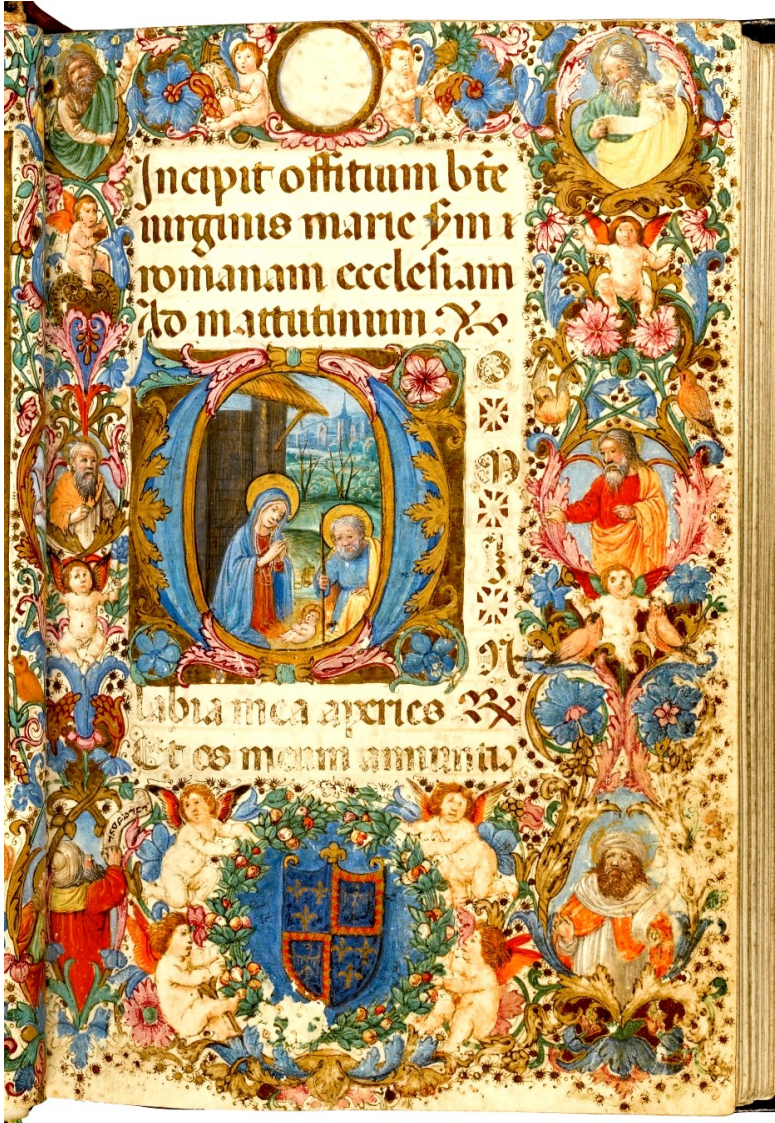 Incipit offitium bt̄e
uirginis marie s̄m
romanam ecclesiam
Ad mattutinum. ℣
D
O
M
I
N
labia mea aperies ℟
Et os meum annunti